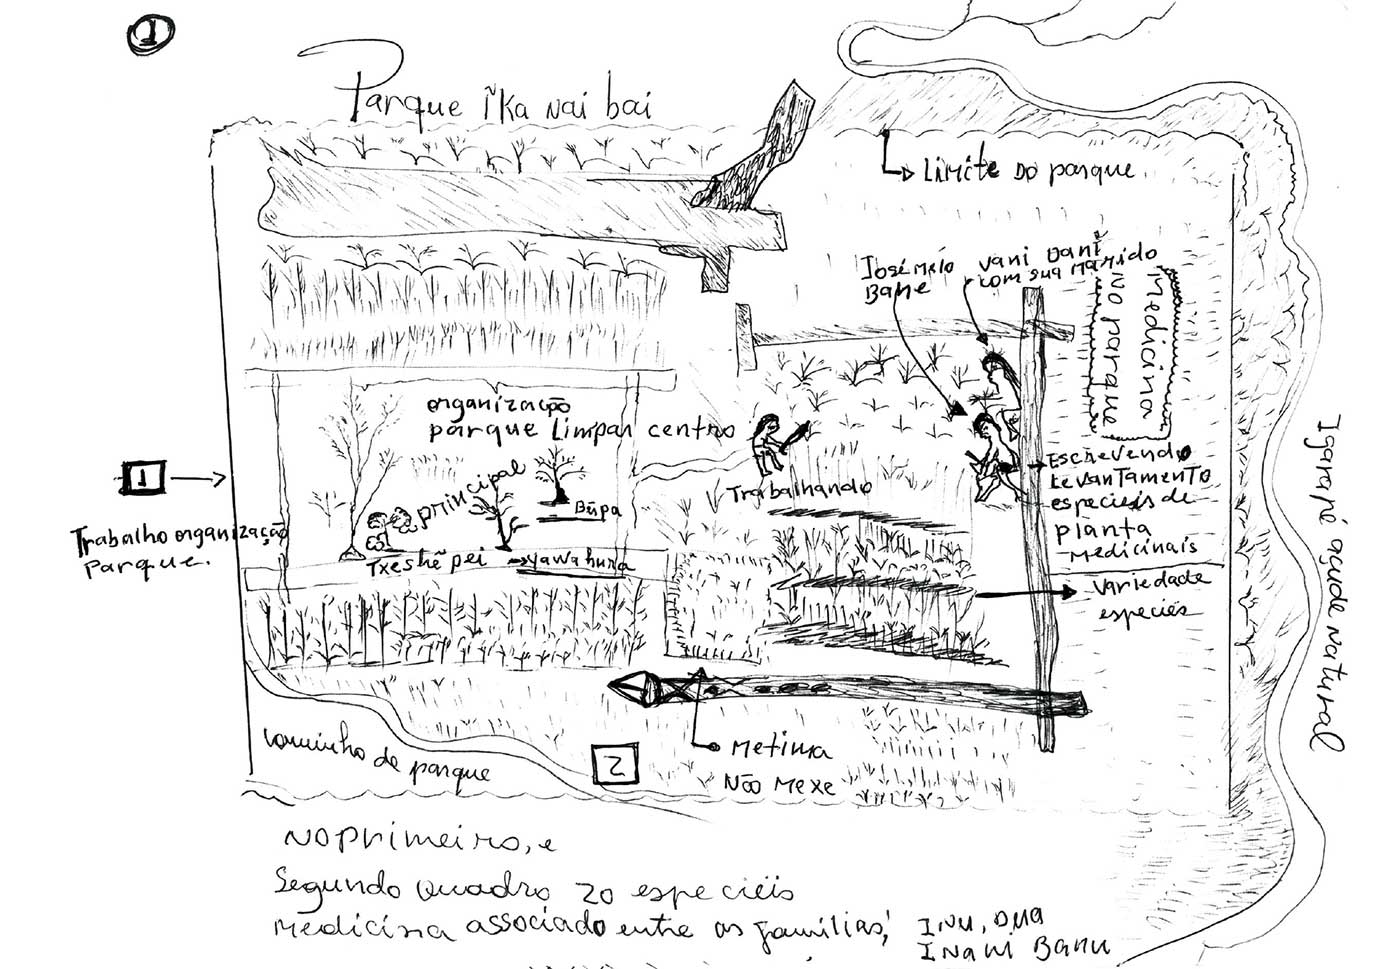 1
Parque ĩka nai bai
Limite do parque
José Melo
Bane
Vani Dani
com sua marido
Medicina
no parque
organização
parque Limpar centro
principal
Bũpa
Txeshẽ pei
yawa huna
Trabalhando
1
Trabalho organização
parque.
Escrevendo
Levantamento
especieis de
planta
medicinais
variedade
especiés
Igarapé açude Natural
caminho de parque
2
metina
Não mexe
No primeiro, e
Segundo quadro 20 especiéis
medicina associado entre as famílias,
INU, DUA
INANI BANU